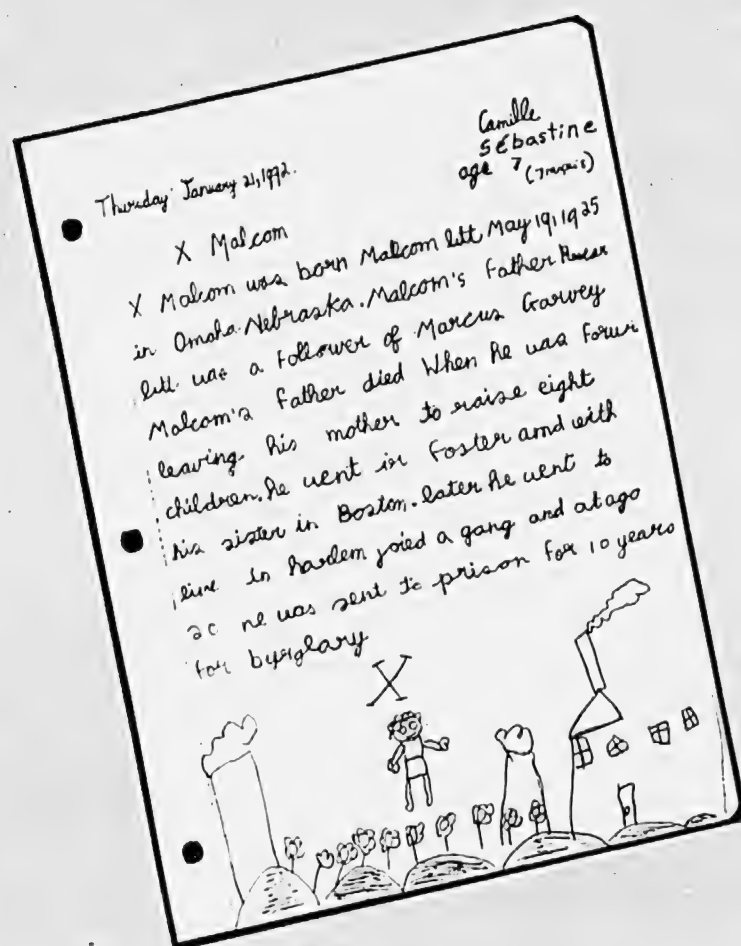 Camille
Sébastine
age 7 (7 français)
Thursday January 21, 1992.
X Malcom
X Malcom was born Malcom litt May 19, 1925
in Omaha Nebraska. Malcom's Father
litt was a Follower of Marcus Garvey
Malcom's Father died When he was Four
leaving his mother to raise eight
children. he went in Foster amd with
his sister in Boston. later he went to
live in harlem joied a gang and at ago
20 he was sent to prison For 10 years
for byrglary
X